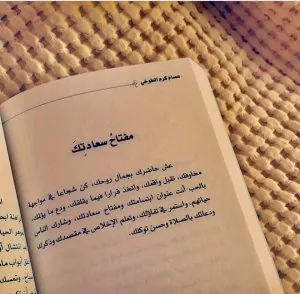 عصام كرم الطوخي
مفتاحُ سعادتِكَ
عش حاضرك بجمال روحك، كن شجاعا في مواجهة
مخاوفك، تقبل واقعك، واتخذ قرارا فيما يقلقك، ودع ما يؤلمك،
بالحب أنت عنوان ابتسامتك ومفتاح سعادتك، وشارك الناس
حياتهم، واستمر في تفاؤلك، وتعلم الإخلاص في مقصدك وذكرك
ودعائك بالصلاة وحسن توكلك.